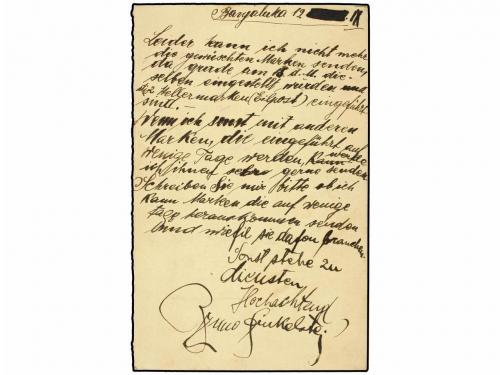 Banjaluka 12
Leider kann ich nicht mehr
die gemischten Marken senden,
da grade am 8. d. M. die-
selben eingestellt wurden und
die 2 Hellermarken (Eilpost) eingeführt
sind. —
Wenn ich sonst mit anderen
Marken, die eingeführt auf
wenige Tage werden, kann werde
ich ihnen sehr gerne senden
Schreiben Sie mir Bitte ob ich
kann Marken die auf wenige
Tage herauskommen senden
und wiefil sie dafon brauchen.
Sonst stehe zu
diensten
Hochachtend
Bruno